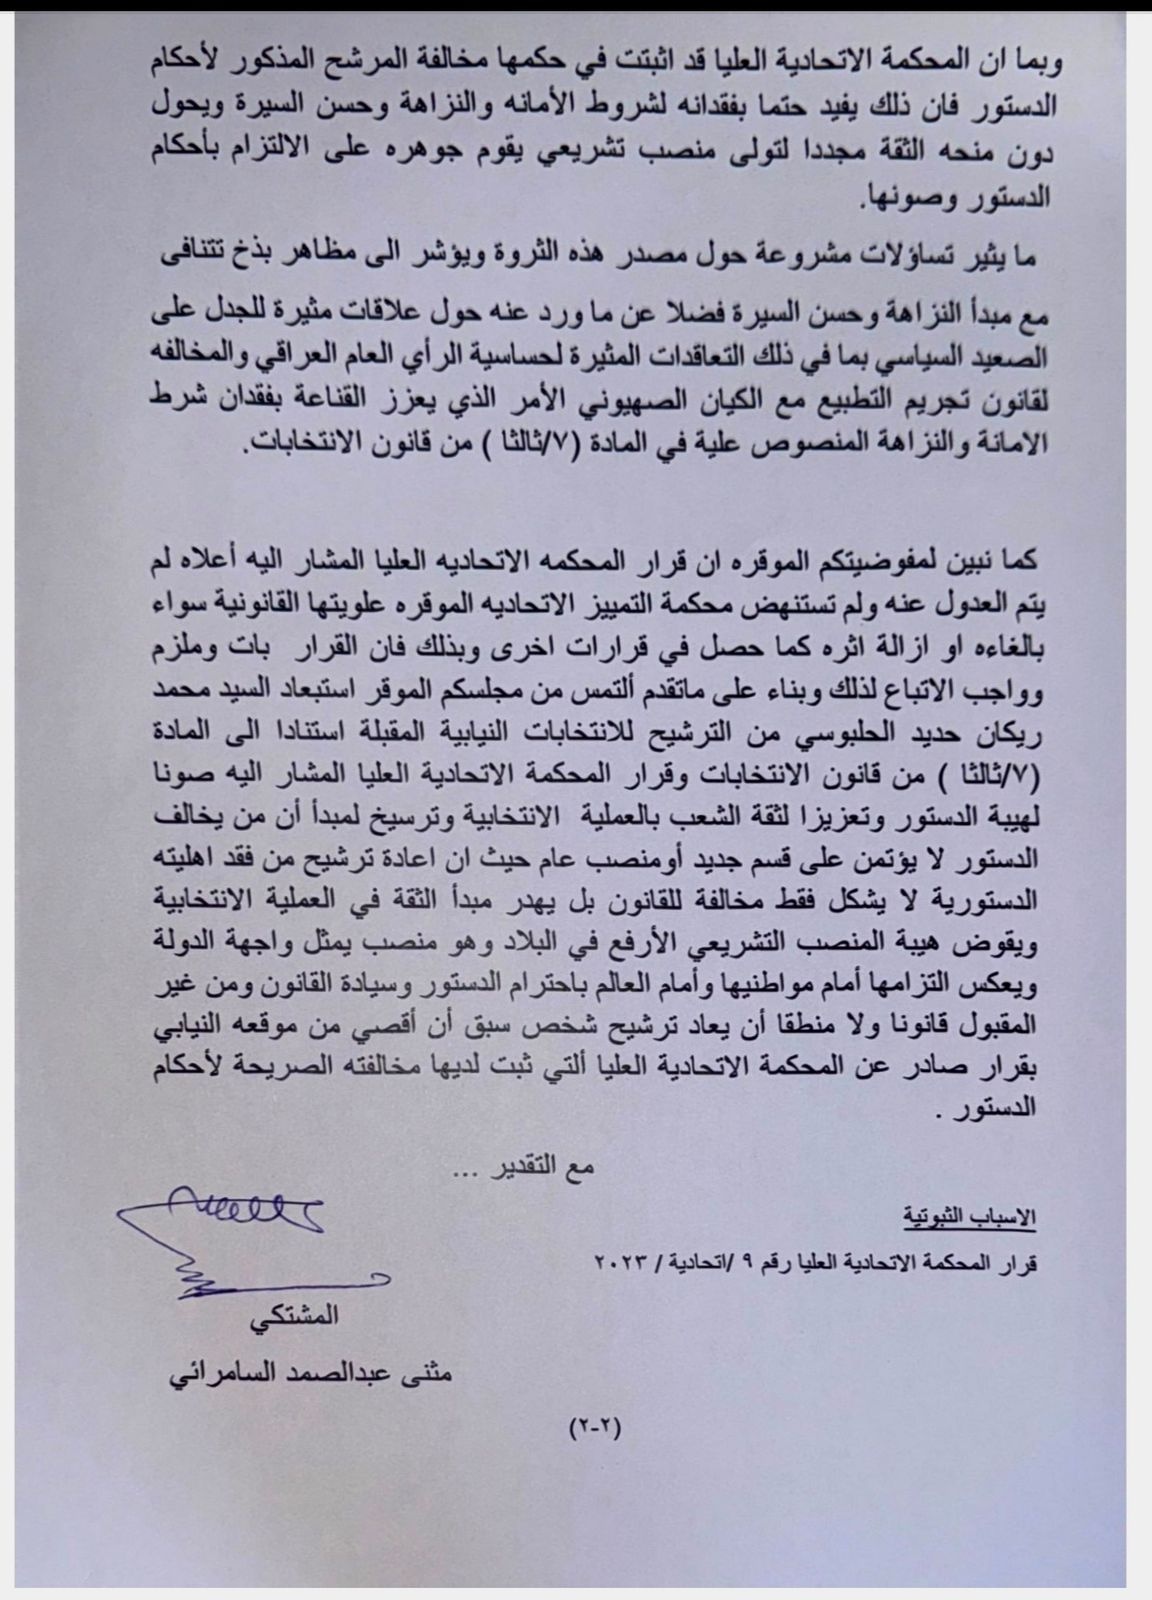 وبما ان المحكمة الاتحادية العليا قد اثبتت في حكمها مخالفة المرشح المذكور لأحكام
الدستور فان ذلك يفيد حتما بفقدانه لشروط الأمانه والنزاهة وحسن السيرة ويحول
دون منحه الثقة مجددا لتولى منصب تشريعي يقوم جوهره على الالتزام بأحكام
الدستور وصونها.
ما يثير تساؤلات مشروعة حول مصدر هذه الثروة ويؤشر الى مظاهر بذخ تتنافى
مع مبدأ النزاهة وحسن السيرة فضلا عن ما ورد عنه حول علاقات مثيرة للجدل على
الصعيد السياسي بما في ذلك التعاقدات المثيرة لحساسية الرأي العام العراقي والمخالفه
لقانون تجريم التطبيع مع الكيان الصهيوني الأمر الذي يعزز القناعة بفقدان شرط
الامانة والنزاهة المنصوص علية في المادة (٧/ثالثا ) من قانون الانتخابات.
كما نبين لمفوضيتكم الموقره ان قرار المحكمه الاتحاديه العليا المشار اليه أعلاه لم
يتم العدول عنه ولم تستنهض محكمة التمييز الاتحاديه الموقره علويتها القانونية سواء
بالغاءه او ازالة اثره كما حصل في قرارات اخرى وبذلك فان القرار بات وملزم
وواجب الاتباع لذلك وبناء على ماتقدم ألتمس من مجلسكم الموقر استبعاد السيد محمد
ريكان حديد الحلبوسي من الترشيح للانتخابات النيابية المقبلة استنادا الى المادة
(٧/ثالثا ) من قانون الانتخابات وقرار المحكمة الاتحادية العليا المشار اليه صونا
لهيبة الدستور وتعزيزا لثقة الشعب بالعملية الانتخابية وترسيخ لمبدأ أن من يخالف
الدستور لا يؤتمن على قسم جديد أومنصب عام حيث ان اعادة ترشيح من فقد اهليته
الدستورية لا يشكل فقط مخالفة للقانون بل يهدر مبدأ الثقة في العملية الانتخابية
ويقوض هيبة المنصب التشريعي الأرفع في البلاد وهو منصب يمثل واجهة الدولة
ويعكس التزامها أمام مواطنيها وأمام العالم باحترام الدستور وسيادة القانون ومن غير
المقبول قانونا ولا منطقا أن يعاد ترشيح شخص سبق أن أقصي من موقعه النيابي
بقرار صادر عن المحكمة الاتحادية العليا ألتي ثبت لديها مخالفته الصريحة لأحكام
الدستور .
مع التقدير ...
الاسباب الثبوتية
قرار المحكمة الاتحادية العليا رقم ٩ /اتحادية / ٢٠٢٣
المشتكي
مثنى عبدالصمد السامرائي
(٢-٢)